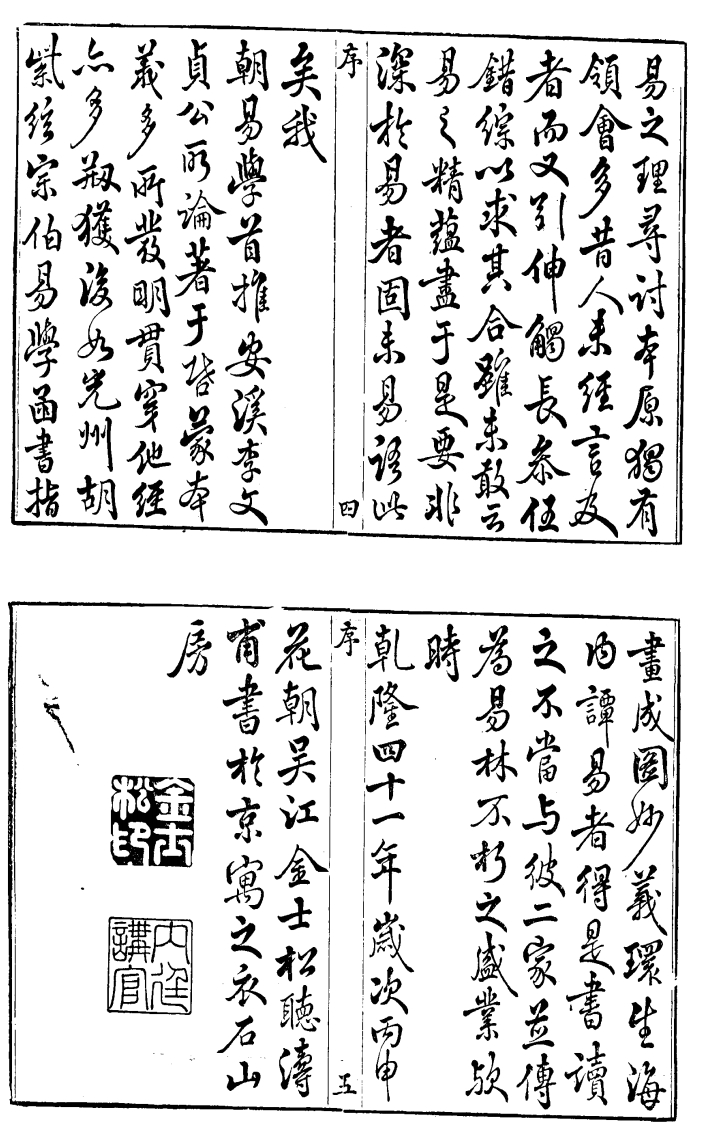 易之理尋討本原獨有
領會多昔人未經言及
者而又引伸觸長參伍
錯綜以求其合雖未敢云
易之精蘊盡于是要非
深於易者固未易語此
序
四
矣我
朝易學首推安溪李文
貞公所論著于啓蒙本
義多所發明貫穿他經
亦多剏獲後如光州胡
紫絃宗伯易學函書指
畫成圖妙義環生海
內譚易者得是書讀
之不當与彼二家並傳
為易林不朽之盛業歟
時
乾隆四十一年歲次丙申
序
五
花朝吴江金士松聽濤
甫書於京寓之衣石山
房
金士松印
內廷講官